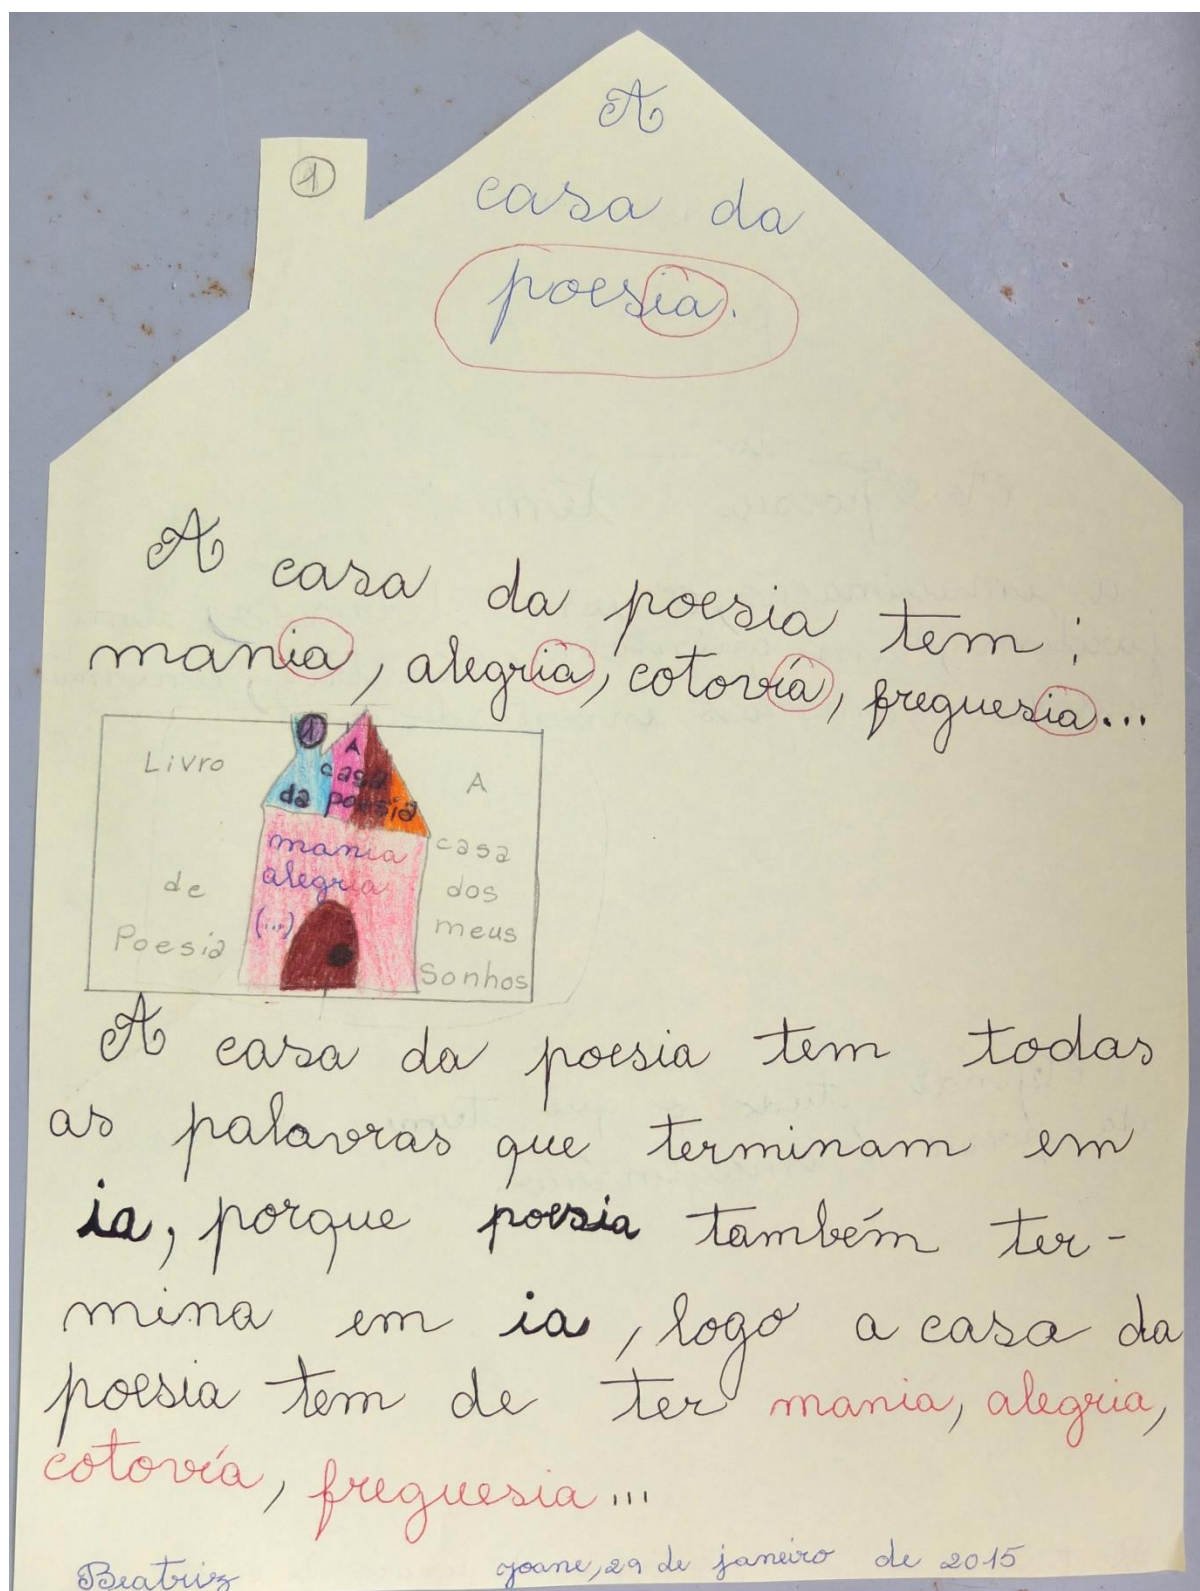 A
1
casa da
poesia.
A casa da poesia tem:
mania, alegria, cotovía, freguesia...
Livro
de
Poesia
1
A
casa
da poesia
mania
alegria
(...)
A
casa
dos
meus
Sonhos
A casa da poesia tem todas
as palavras que terminam em
ia, porque poesia também ter-
mina em ia, logo a casa da
poesia tem de ter mania, alegria,
cotovía, freguesia...
Beatriz
Joane, 29 de janeiro de 2015